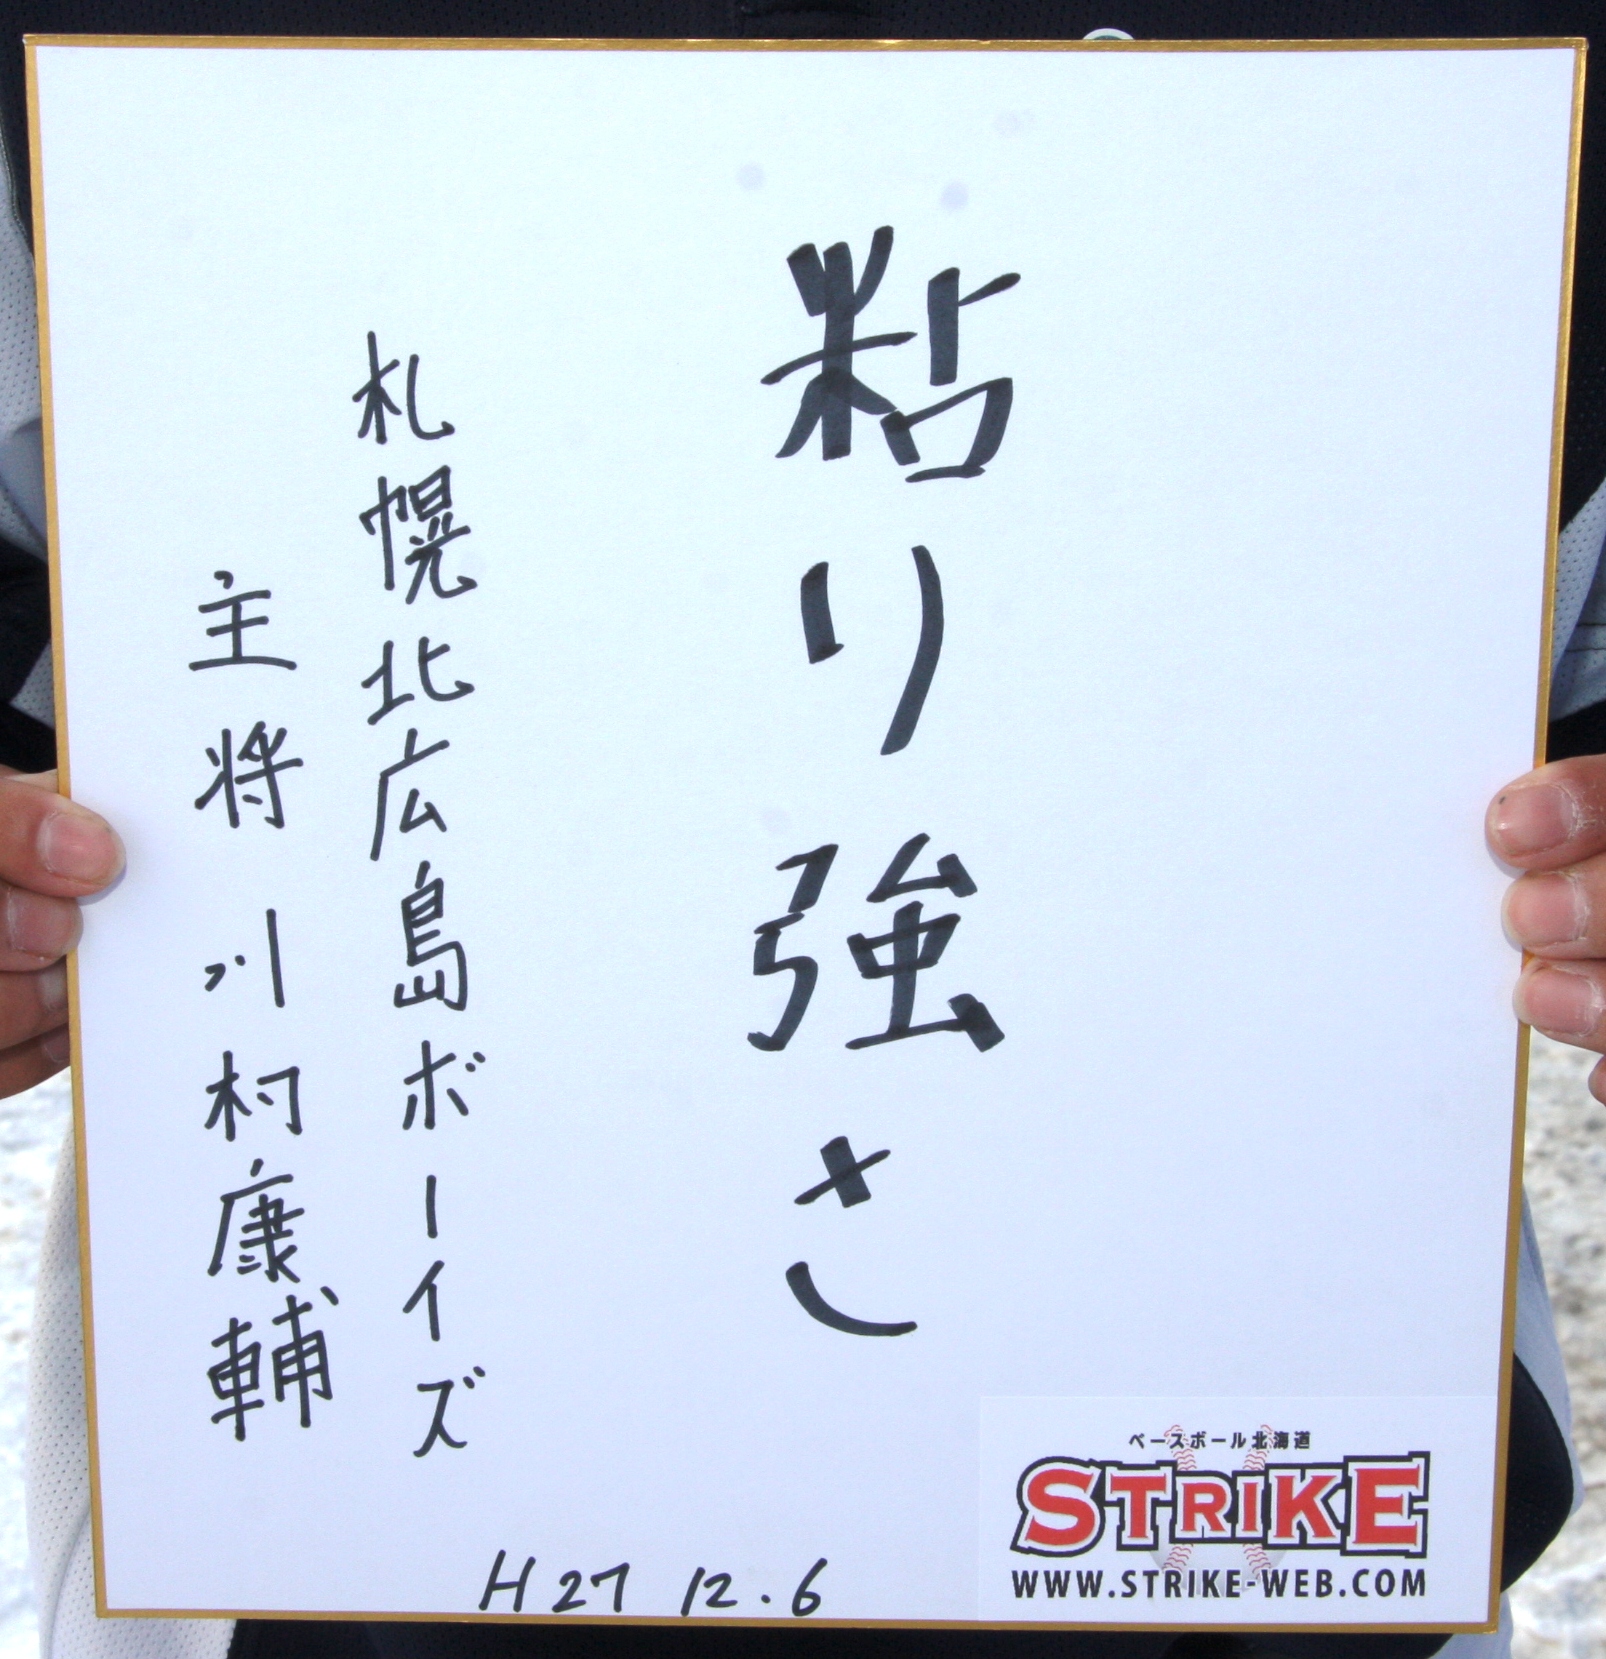 粘り強さ
札幌北広島ボーイズ
主将 川村康輔
H27 12.6
ベースボール北海道
STRIKE
WWW.STRIKE-WEB.COM